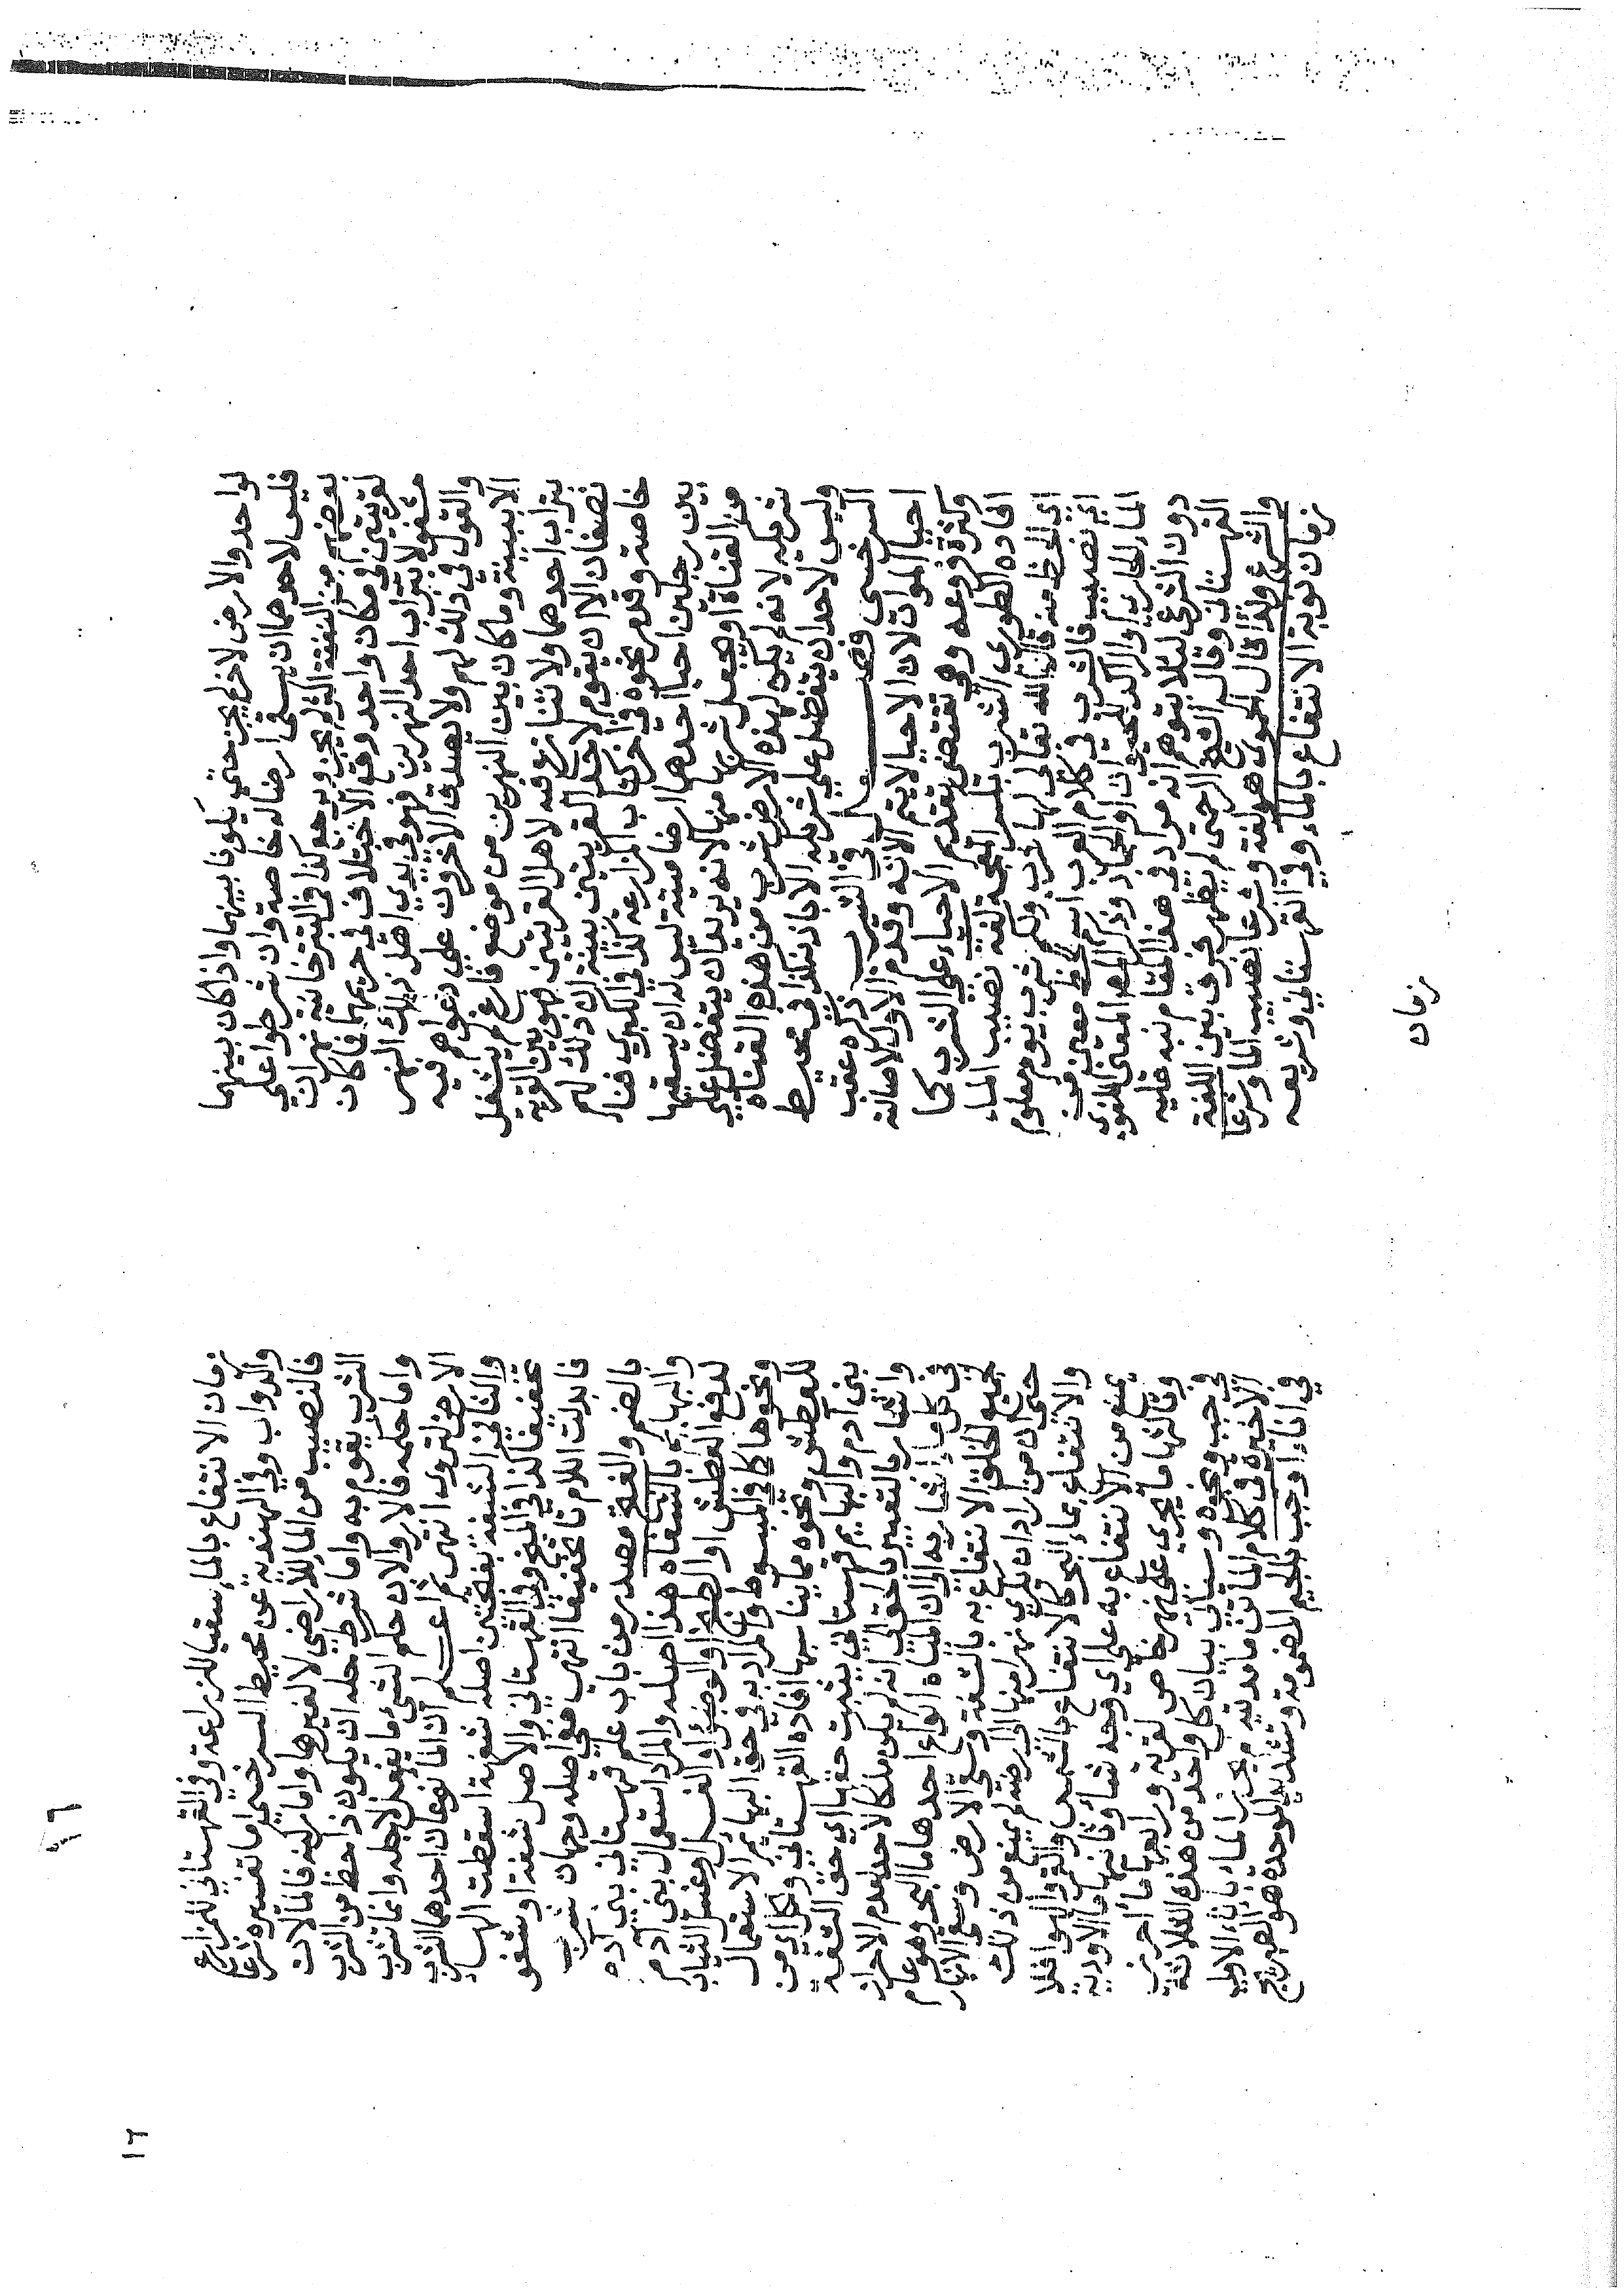 لواحد والارض لاخر لم يجز حتى يكونا بينهما واذا كان بينهما
فليس لاحدهما ان يسقي ارضا له خاصة وان شرطوا على
بعضهم من النفقة اكثر لم يجز ويرجع كذا في التترخانية نهران
لقريتين في مكان واحد وقع الاختلاف في حريمهما فما كان
مشغولا بتراب احد النهرين فهو في ايدي اهل ذلك النهر
والقول في ذلك لهم ولا يصدق الاخرون على دعواهم فيه
الا ببينة وما كان بين النهرين من موضع فارغ لم يشغل
بتراب احدهما ولا تنازع فيه لاهل القريتين فهو بين القريه
نصفان الا ان يقوم لاحد القريتين بينة ان ذلك لهم
خاصة وقد مر نحوه في اخر كتاب المزارعة كذا في الكبري قناة
بين رجلين احيا احدهما ارضا ميتة ليس له ان يسقيها
من القناة او يجعل شربها منها لانه يريد ان يتفضل على
شريكه لانه لم يكن لهذه الارض شرب من هذه القناة
وليس لاحد ان يتفضل على شريكه الا باذنه كذا في محيط
السرخسي فصل في الشرب ذكره عقب
احيا الموات لان الاحيا لا يتم الا به وقدم الاول لاصالته
وكثرة فروعه وهي تقتضي تقديم الاحياء على الشرب كما
افاده الطوري الشرب بكسر المعجمة لغة نصيب الماء
اي الحظ منه قال الله تعالى لها شرب ولكم شرب يوم معلوم
اي نصيب فالشرب في كلام العرب اسم لحظ معين من
الماء الجاري او الراكد للحيوان او الجماد وذكر المص المعنى اللغوي
دون الشرعي لئلا يتوهم انه مراد في هذا المقام نبه عليه
القهستاني وقال الشيخ الرحتي لم يظهر فرق بين اللغة
والشرع ولذا قال الحموي هو لغة وشرعا نصيب الماء وشرعا
زمان نوبة الانتفاع بالماء وفي القهستاني وشريعه
زمان
زمان الانتفاع بالماء سقيا للزراعة وفي القهستاني للمزارع
والدواب وفي الهندية عن محيط السرخسي اما تفسيره شرعا
فالنصيب من الماء للاراضي لا لغيرها واما ركنه فالماء لان
الشرب يقوم به واما شرط حله ان يكون ذا حظ من الشرب
واما حكمه فالارواء لان حكم الشئ ما يفعل لاجله وانما تشرب
الارض لتروى انتهى ثم اعلم ان الماء نوعان احدهما الشرب
والثاني الشفة بفتحتين اصله شفهة اسقطت الهاء
تخفيفا كذا في المنح وفي القهستاني والاصل شفة او شفو
فابدلت اللام تا تخفيفا انتهى ففي اصله وجهان شرب
بالضم والفتح مصدر من باب علم قهستاني بني آدم
والبهايم بالشفاه هذا اصله والمراد استعمال بني آدم
لدفع العطش او الطبخ او الوضوء او الغسل او غسل الثياب
ونحوها كما في المبسوط والمراد به في حق البهايم الاستعمال
للعطش ونحوه مما يناسبها افاده القهستاني ولكل اي من
بني آدم والبهايم قهستاني يثبت حقها اي حق الشفة
واشار بالتعبير بالحق الى انه لم يكن ملكا لاحد لعدم الاحراز
في كل ماء اشار به الى ان المياه انواع احدها ماء البحر وهو عام
لجميع الخلق الانتفاع به بالشفة وسقي الارض وسقي الانهار
حتى ان من اراد ان يكري نهرا منها الى ارضه لم يمنع من ذلك
والانتفاع بماء البحر كالانتفاع بالشمس والقمر والهوا فلا
يمنع من الانتفاع به على اي وجه شاء وثانيها ماء الاودية
وثالثها ما يجري على نهر خاص لقرية ورابعها ما احرز
في حب ونحوه وسياتي بيان كل واحد من هذه الثلاثة
الاخيرة في كلام الماتن مامدية لم يحرز الماء باناء الاولى
في اناء او حب بالجيم المضمومة وتشديد الموحدة هو الصهريج
١٦